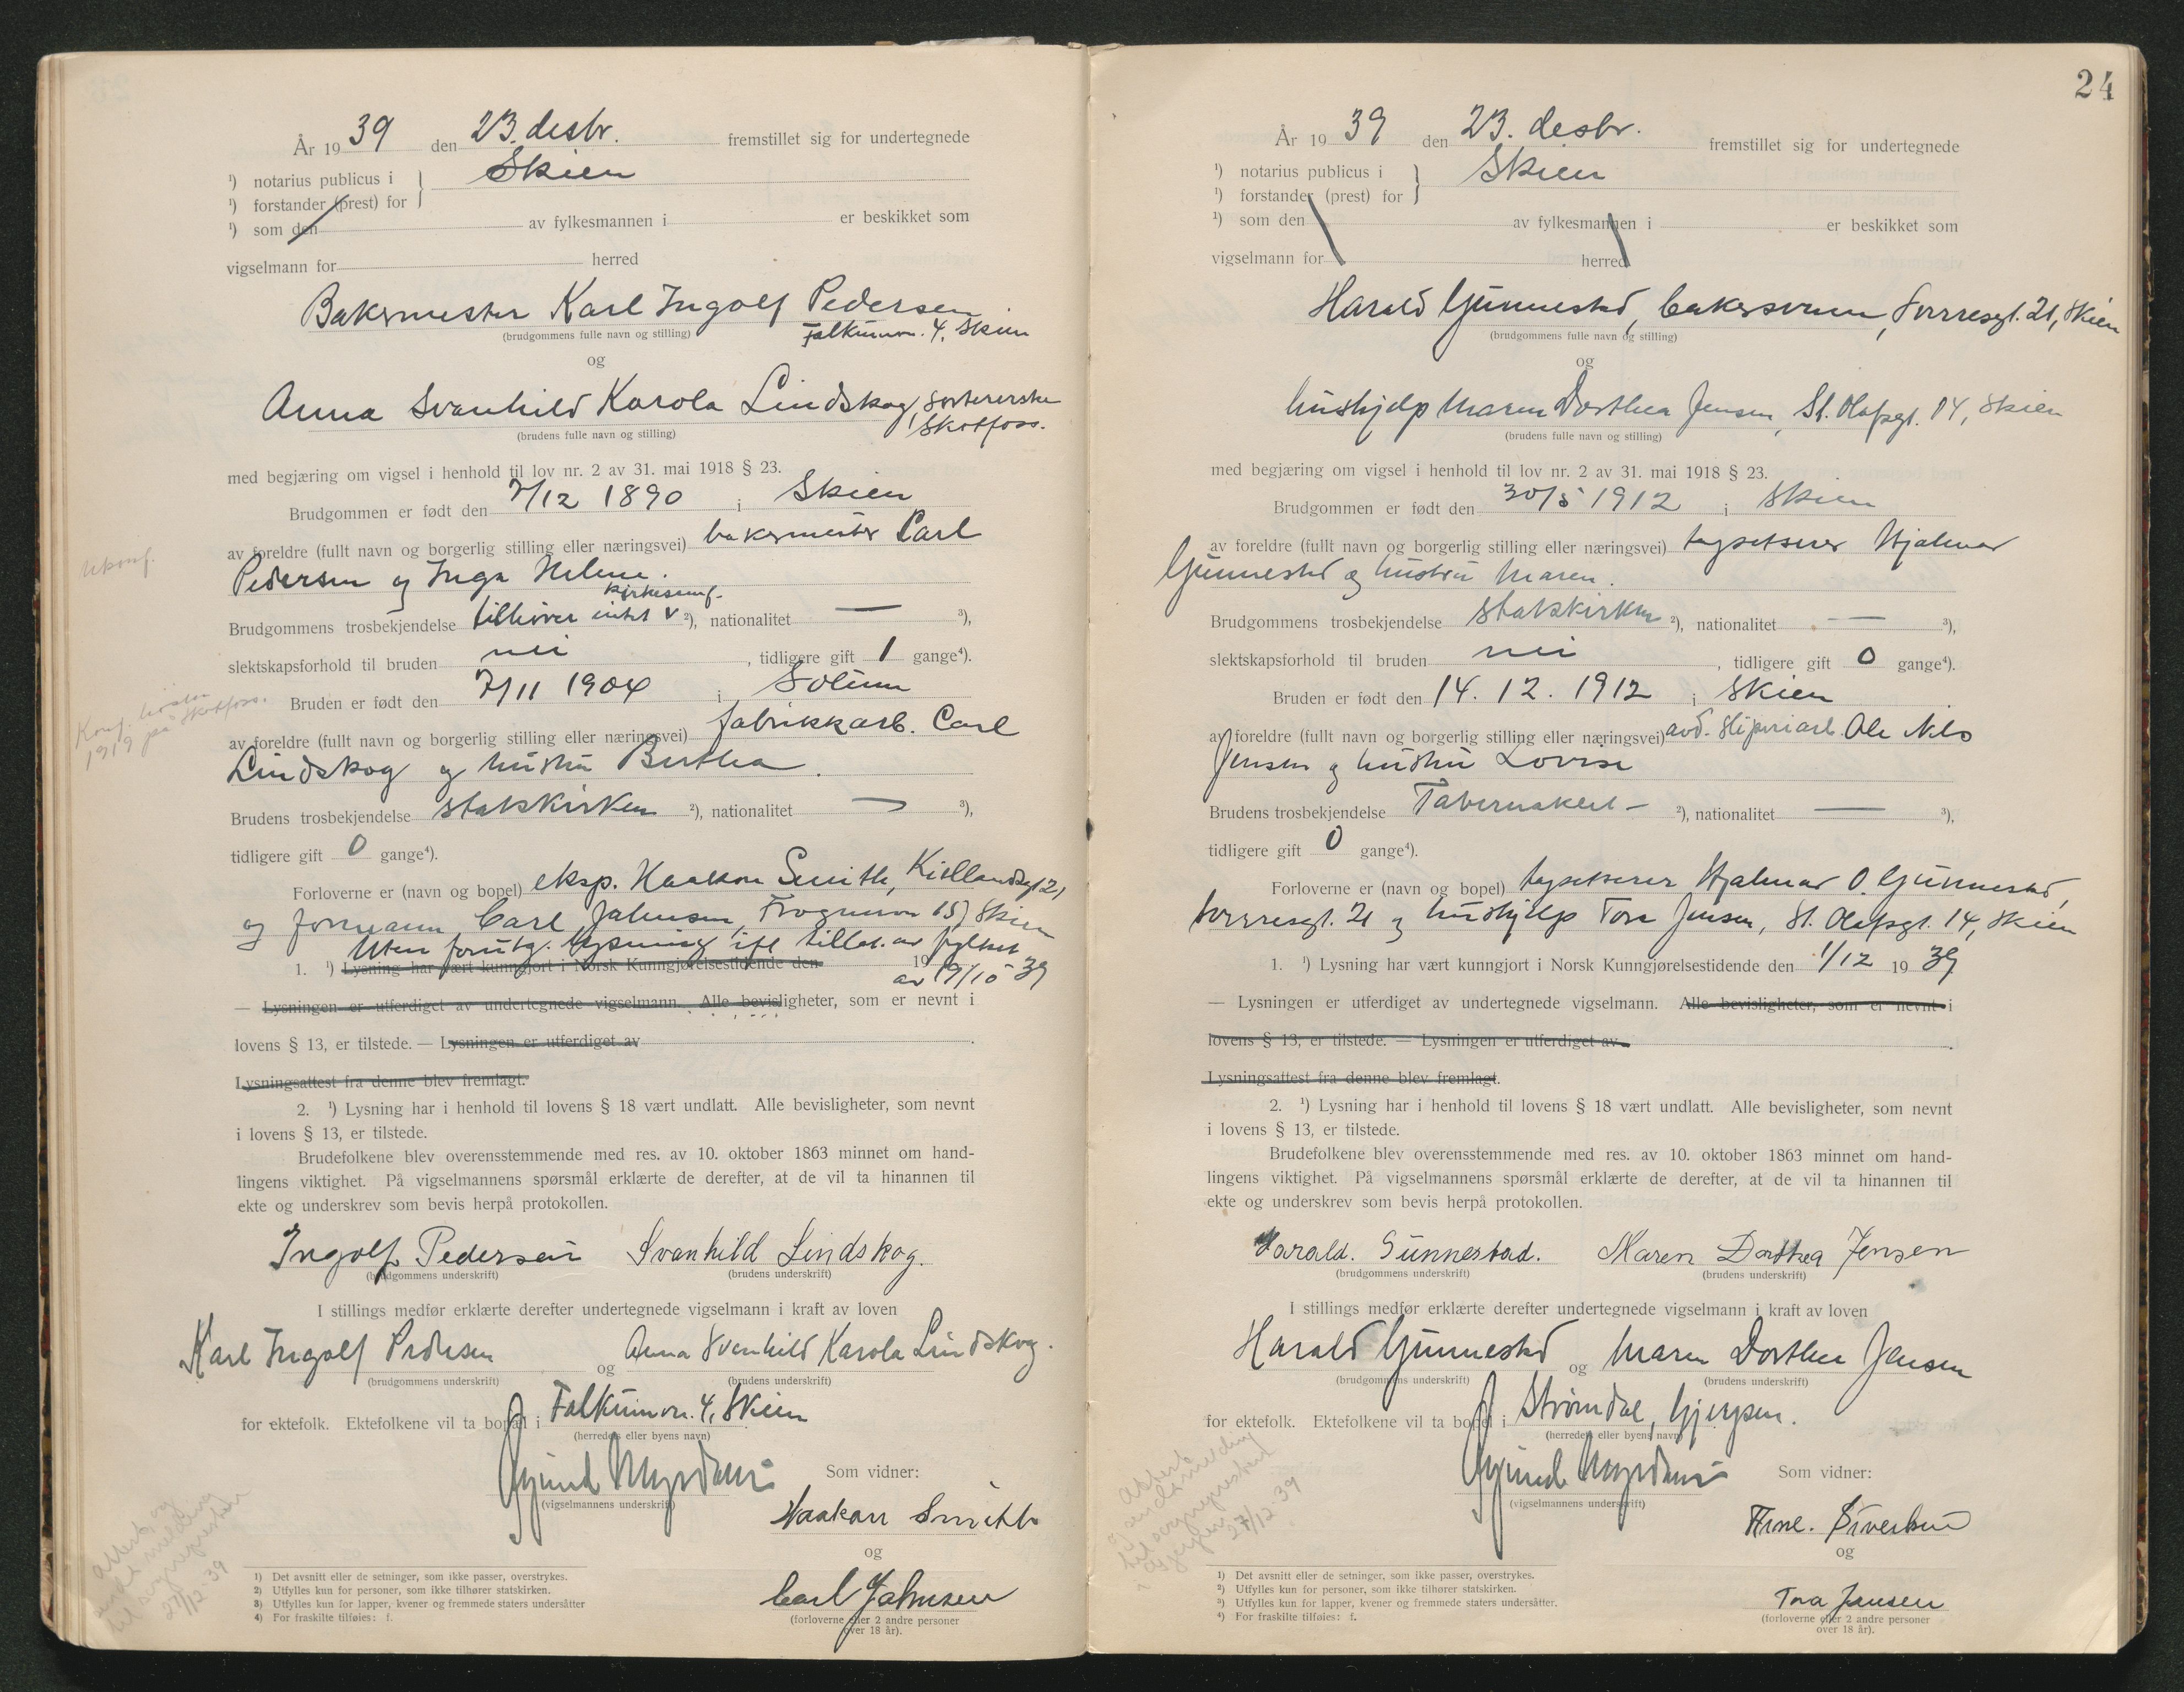 År 1939 den 23. desbr. fremstillet sig for undertegnede
¹) notarius publicus i } Skien
¹) forstander (prest) for
¹) som den av fylkesmannen i er beskikket som
vigselmann for herred
Bakermester Karl Ingolf Pedersen
Falkumvn. 4, Skien
(brudgommens fulle navn og stilling)
og
Anna Svanhild Karola Lindskog, sortererske
Skotfoss.
(brudens fulle navn og stilling)
med begjæring om vigsel i henhold til lov nr. 2 av 31. mai 1918 § 23.
Brudgommen er født den 7/12 1890 i Skien
av foreldre (fullt navn og borgerlig stilling eller næringsvei) bakermester Carl
Ukonf.
Pedersen og Inga Helene.
kirkesamf.
Brudgommens trosbekjendelse tilhører intet v ²), nationalitet — ³),
slektskapsforhold til bruden nei, tidligere gift 1 gange⁴).
Bruden er født den 7/11 1904 i Solum
Konf. høsten
1919 på Skotfoss.
av foreldre (fullt navn og borgerlig stilling eller næringsvei) fabrikkarb. Carl
Lindskog og hustru Bertha.
Brudens trosbekjendelse statskirken ²), nationalitet — ³),
tidligere gift 0 gange⁴).
Forloverne er (navn og bopel) eksp. Haakon Smith, Kiellandsgt 21
og formann Carl Jahnsen, Frognervn 15, Skien
Uten forutg. lysning ifl tillat. av fylket
1. ¹) Lysning har vært kunngjort i Norsk Kunngjørelsestidende den 19
av 19/10 39
— Lysningen er utferdiget av undertegnede vigselmann. Alle bevisligheter, som er nevnt i
lovens § 13, er tilstede. — Lysningen er utferdiget av
Lysningsattest fra denne blev fremlagt.
2. ¹) Lysning har i henhold til lovens § 18 vært undlatt. Alle bevisligheter, som nevnt
i lovens § 13, er tilstede.
Brudefolkene blev overensstemmende med res. av 10. oktober 1863 minnet om hand-
lingens viktighet. På vigselmannens spørsmål erklærte de derefter, at de vil ta hinannen til
ekte og underskrev som bevis herpå protokollen.
Ingolf Pedersen Svanhild Lindskog.
(brudgommens underskrift) (brudens underskrift)
I stillings medfør erklærte derefter undertegnede vigselmann i kraft av loven
Karl Ingolf Pedersen og Anna Svanhild Karola Lindskog.
(brudgommens underskrift) (brudens underskrift)
for ektefolk. Ektefolkene vil ta bopel i Falkumvn. 4, Skien
(herredets eller byens navn)
Som vidner:
(vigselmannens underskrift)
Haakon Smith
og
Carl Jahnsen
(forloverne eller 2 andre personer
over 18 år).
Attest og
ende melding
til sognepresten
27/12-39
1) Det avsnitt eller de setninger, som ikke passer, overstrykes.
2) Utfylles kun for personer, som ikke tilhører statskirken.
3) Utfylles kun for lapper, kvener og fremmede staters undersåtter
4) For fraskilte tilføies: f.
24
År 1939 den 23. desbr. fremstillet sig for undertegnede
¹) notarius publicus i } Skien
¹) forstander (prest) for
¹) som den av fylkesmannen i er beskikket som
vigselmann for herred
Harald Gunnestad, bakersvenn, Torvresgt. 21, Skien
(brudgommens fulle navn og stilling)
og
hushjelp Maren Dorthea Jensen, St. Olafsgt. 14, Skien
(brudens fulle navn og stilling)
med begjæring om vigsel i henhold til lov nr. 2 av 31. mai 1918 § 23.
Brudgommen er født den 30/5 1912 i Skien
av foreldre (fullt navn og borgerlig stilling eller næringsvei) typesetter Hjalmar
Gunnestad og hustru Maren.
Brudgommens trosbekjendelse statskirken ²), nationalitet — ³),
slektskapsforhold til bruden nei, tidligere gift 0 gange⁴).
Bruden er født den 14. 12. 1912 i Skien
av foreldre (fullt navn og borgerlig stilling eller næringsvei) avd. sliperiarb. Ole Nils
Jensen og hustru Lovise
Brudens trosbekjendelse Tabernaklet — ²), nationalitet — ³),
tidligere gift 0 gange⁴).
Forloverne er (navn og bopel) Hjalmar O. Gunnestad,
21 og hushjelp Tora Jensen, St. Olafsgt. 14, Skien
1. ¹) Lysning har vært kunngjort i Norsk Kunngjørelsestidende den 1/12 1939
— Lysningen er utferdiget av undertegnede vigselmann. Alle bevisligheter, som er nevnt i
lovens § 13, er tilstede. — Lysningen er utferdiget av
Lysningsattest fra denne blev fremlagt.
2. ¹) Lysning har i henhold til lovens § 18 vært undlatt. Alle bevisligheter, som nevnt
i lovens § 13, er tilstede.
Brudefolkene blev overensstemmende med res. av 10. oktober 1863 minnet om hand-
lingens viktighet. På vigselmannens spørsmål erklærte de derefter, at de vil ta hinannen til
ekte og underskrev som bevis herpå protokollen.
Harald. Gunnestad. Maren Dorthea Jensen
(brudgommens underskrift) (brudens underskrift)
I stillings medfør erklærte derefter undertegnede vigselmann i kraft av loven
Harald Gunnestad og Maren Dorthea Jensen
(brudgommens underskrift) (brudens underskrift)
for ektefolk. Ektefolkene vil ta bopel i Strømdal, Gjerpen.
(herredets eller byens navn)
Som vidner:
(vigselmannens underskrift)
og
Tora Jensen
(forloverne eller 2 andre personer
over 18 år).
Attest
og endemelding
til sognepresten
i Gjerpen 27/12-39
1) Det avsnitt eller de setninger, som ikke passer, overstrykes.
2) Utfylles kun for personer, som ikke tilhører statskirken.
3) Utfylles kun for lapper, kvener og fremmede staters undersåtter.
4) For fraskilte tilføies: f.